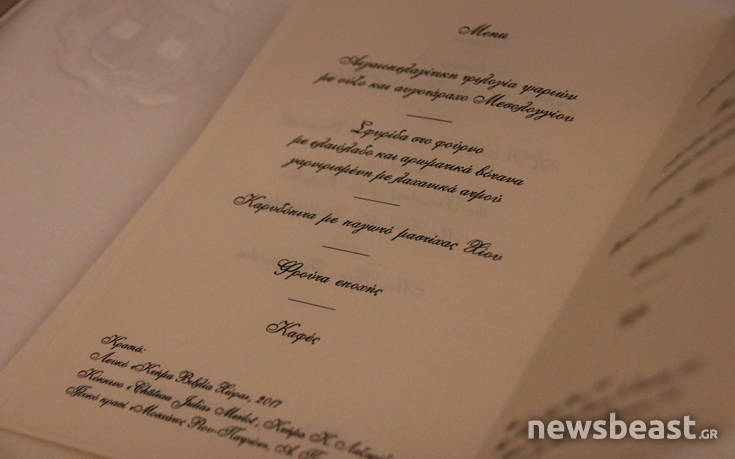 Menu
Αιγαιοπελαγίτικη τριλογία ψαριών
με ούζο και αυγοτάραχο Μεσολογγίου
Σφυρίδα στο φούρνο
με ελαιόλαδο και αρωματικά βότανα
γαρνιρισμένη με λαχανικά ατμού
Καρυδόπιτα με παγωτό μαστίχας Χίου
Φρούτα εποχής
Καφές
Κρασιά:
Λευκό «Κτήμα Βιβλία Χώρα», 2017
Κόκκινο «Château Julia» Merlot, Κτήμα Κ. Λαζαρίδη
Γλυκό κρασί «Μοσχάτος Ρίου-Πατρών», Α.
newsbeast.GR